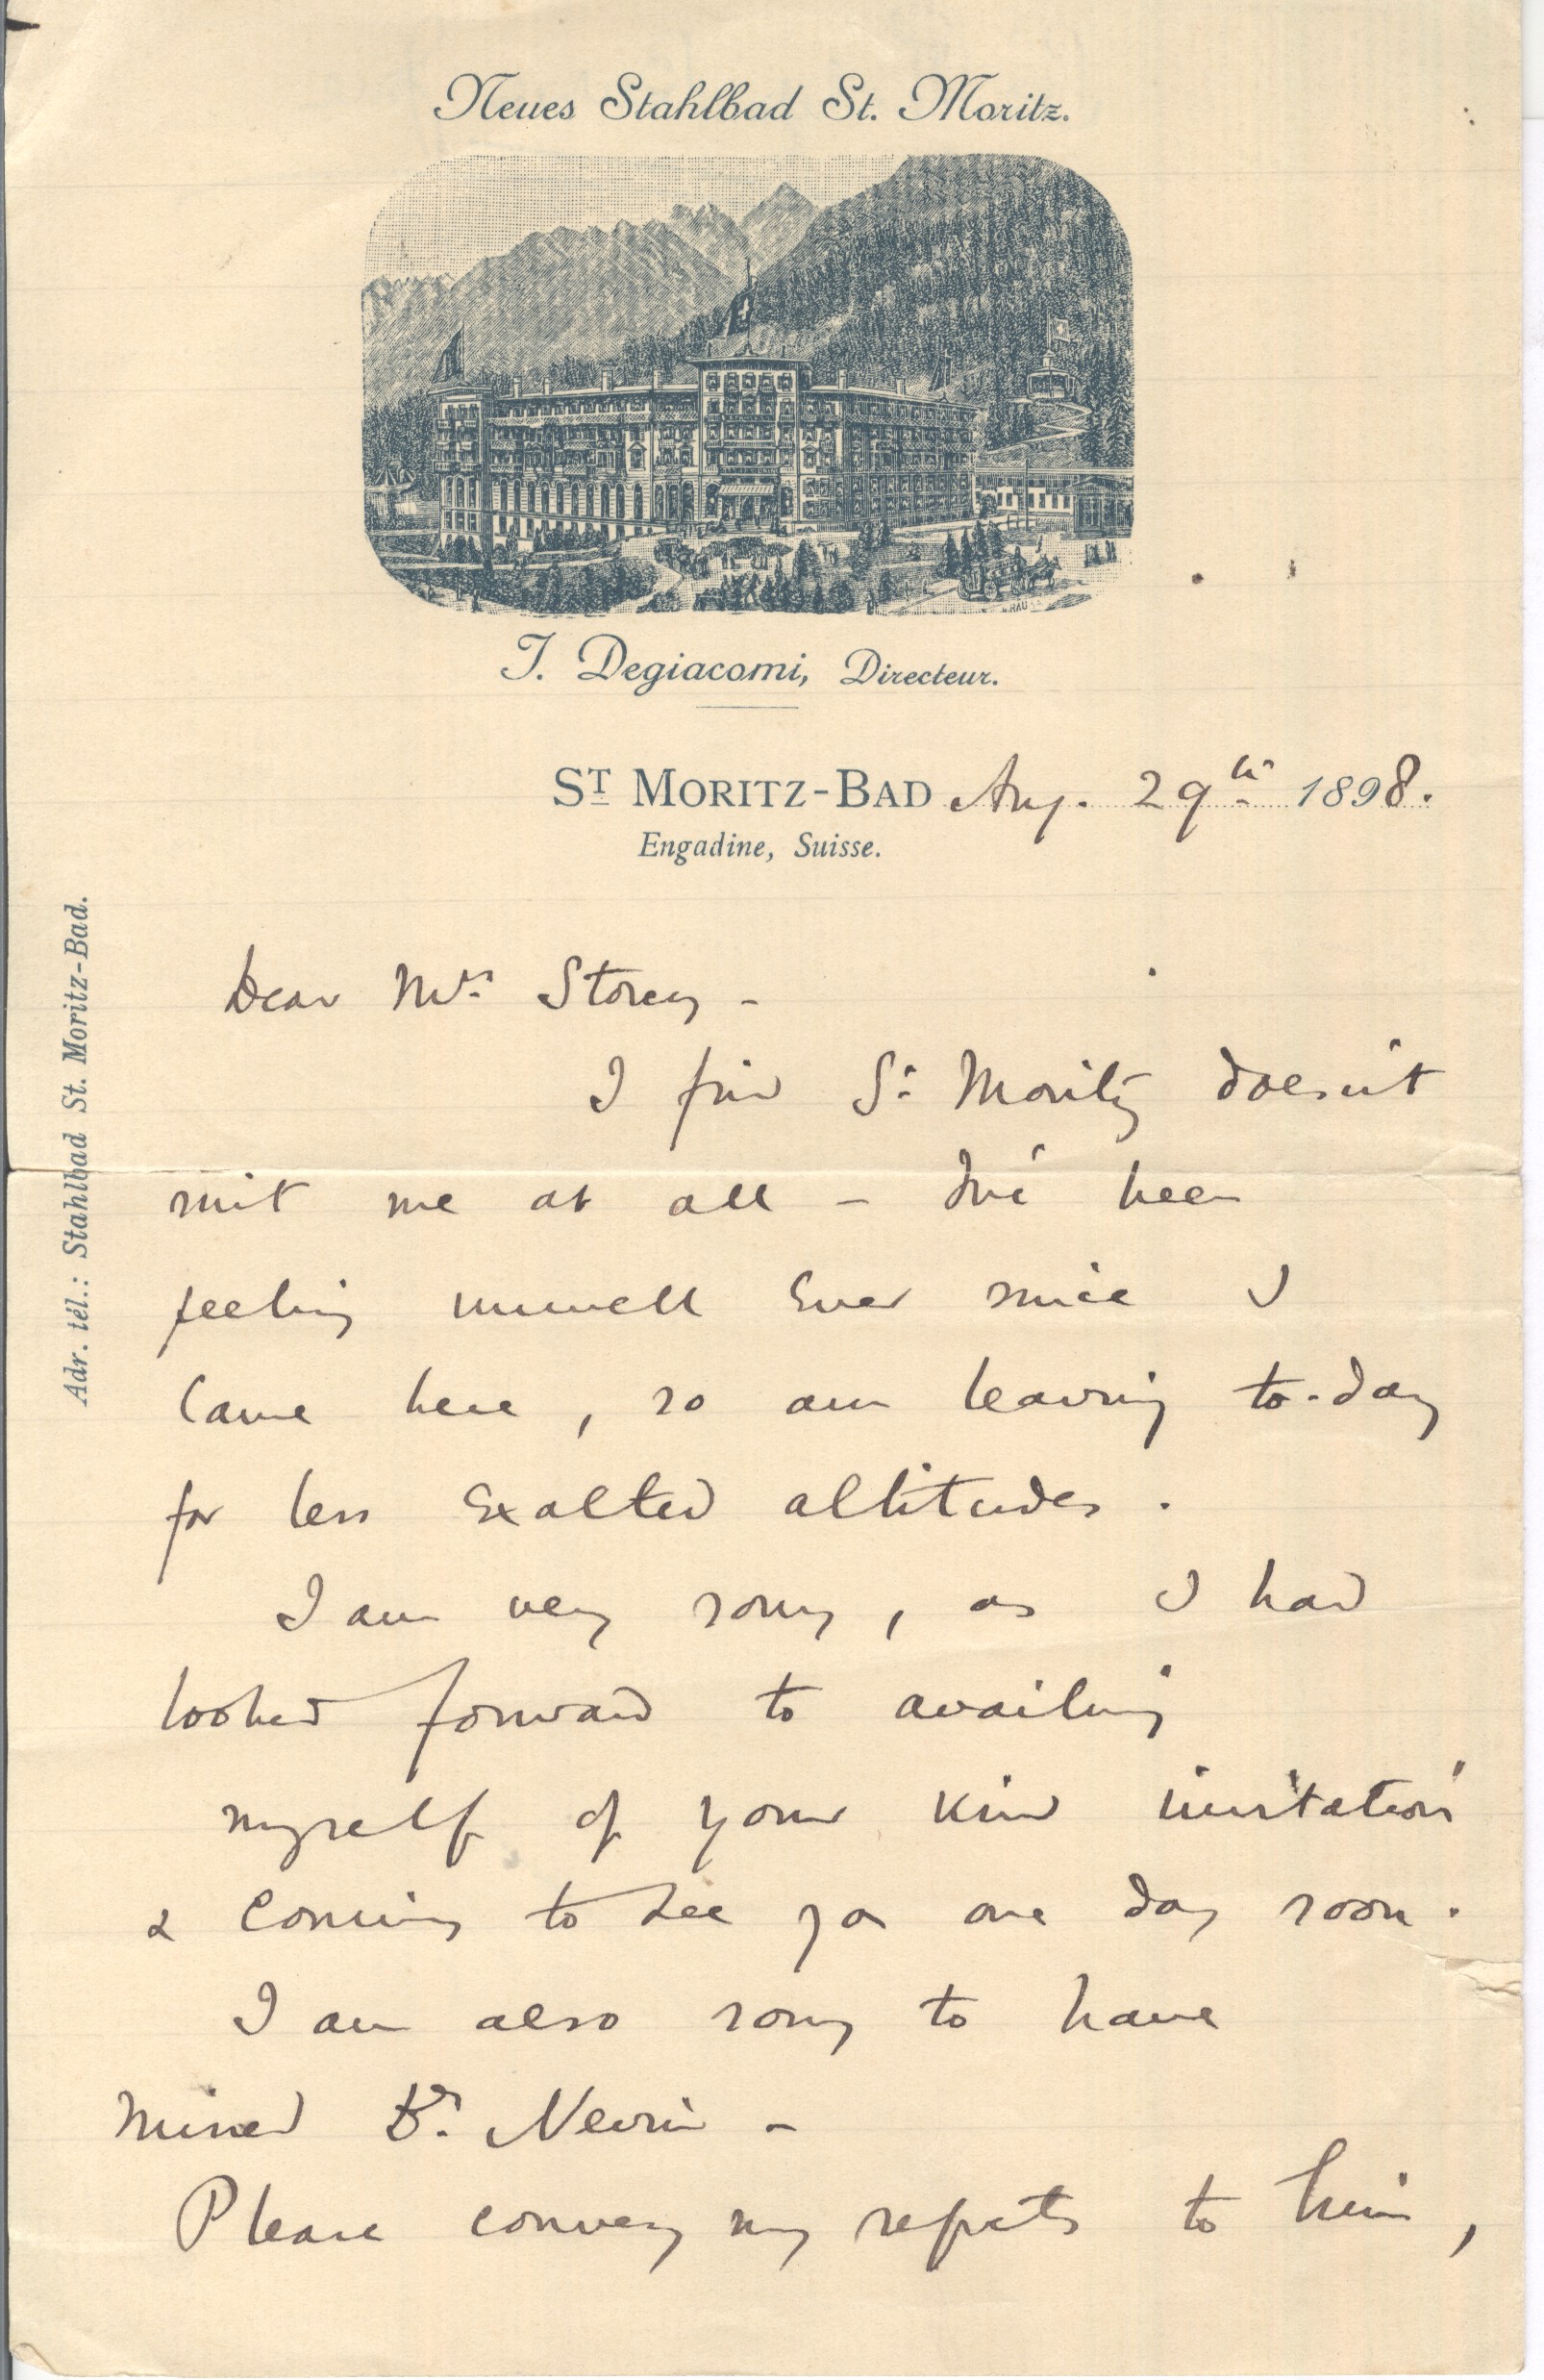 Neues Stahlbad St. Moritz.
RAU
J. Degiacomi, Directeur.
St Moritz-Bad Aug. 29th 1898.
Engadine, Suisse.
Adr. tél.: Stahlbad St. Moritz-Bad.
Dear Mrs. Storey -
I find St. Moritz doesn't
suit me at all - I've been
feeling unwell ever since I
came here, so am leaving to-day
for less exalted altitudes.
I am very sorry, as I had
looked forward to availing
myself of your kind invitation
& coming to see you one day soon.
I am also sorry to have
missed Dr. Nevin -
Please convey my regrets to him,